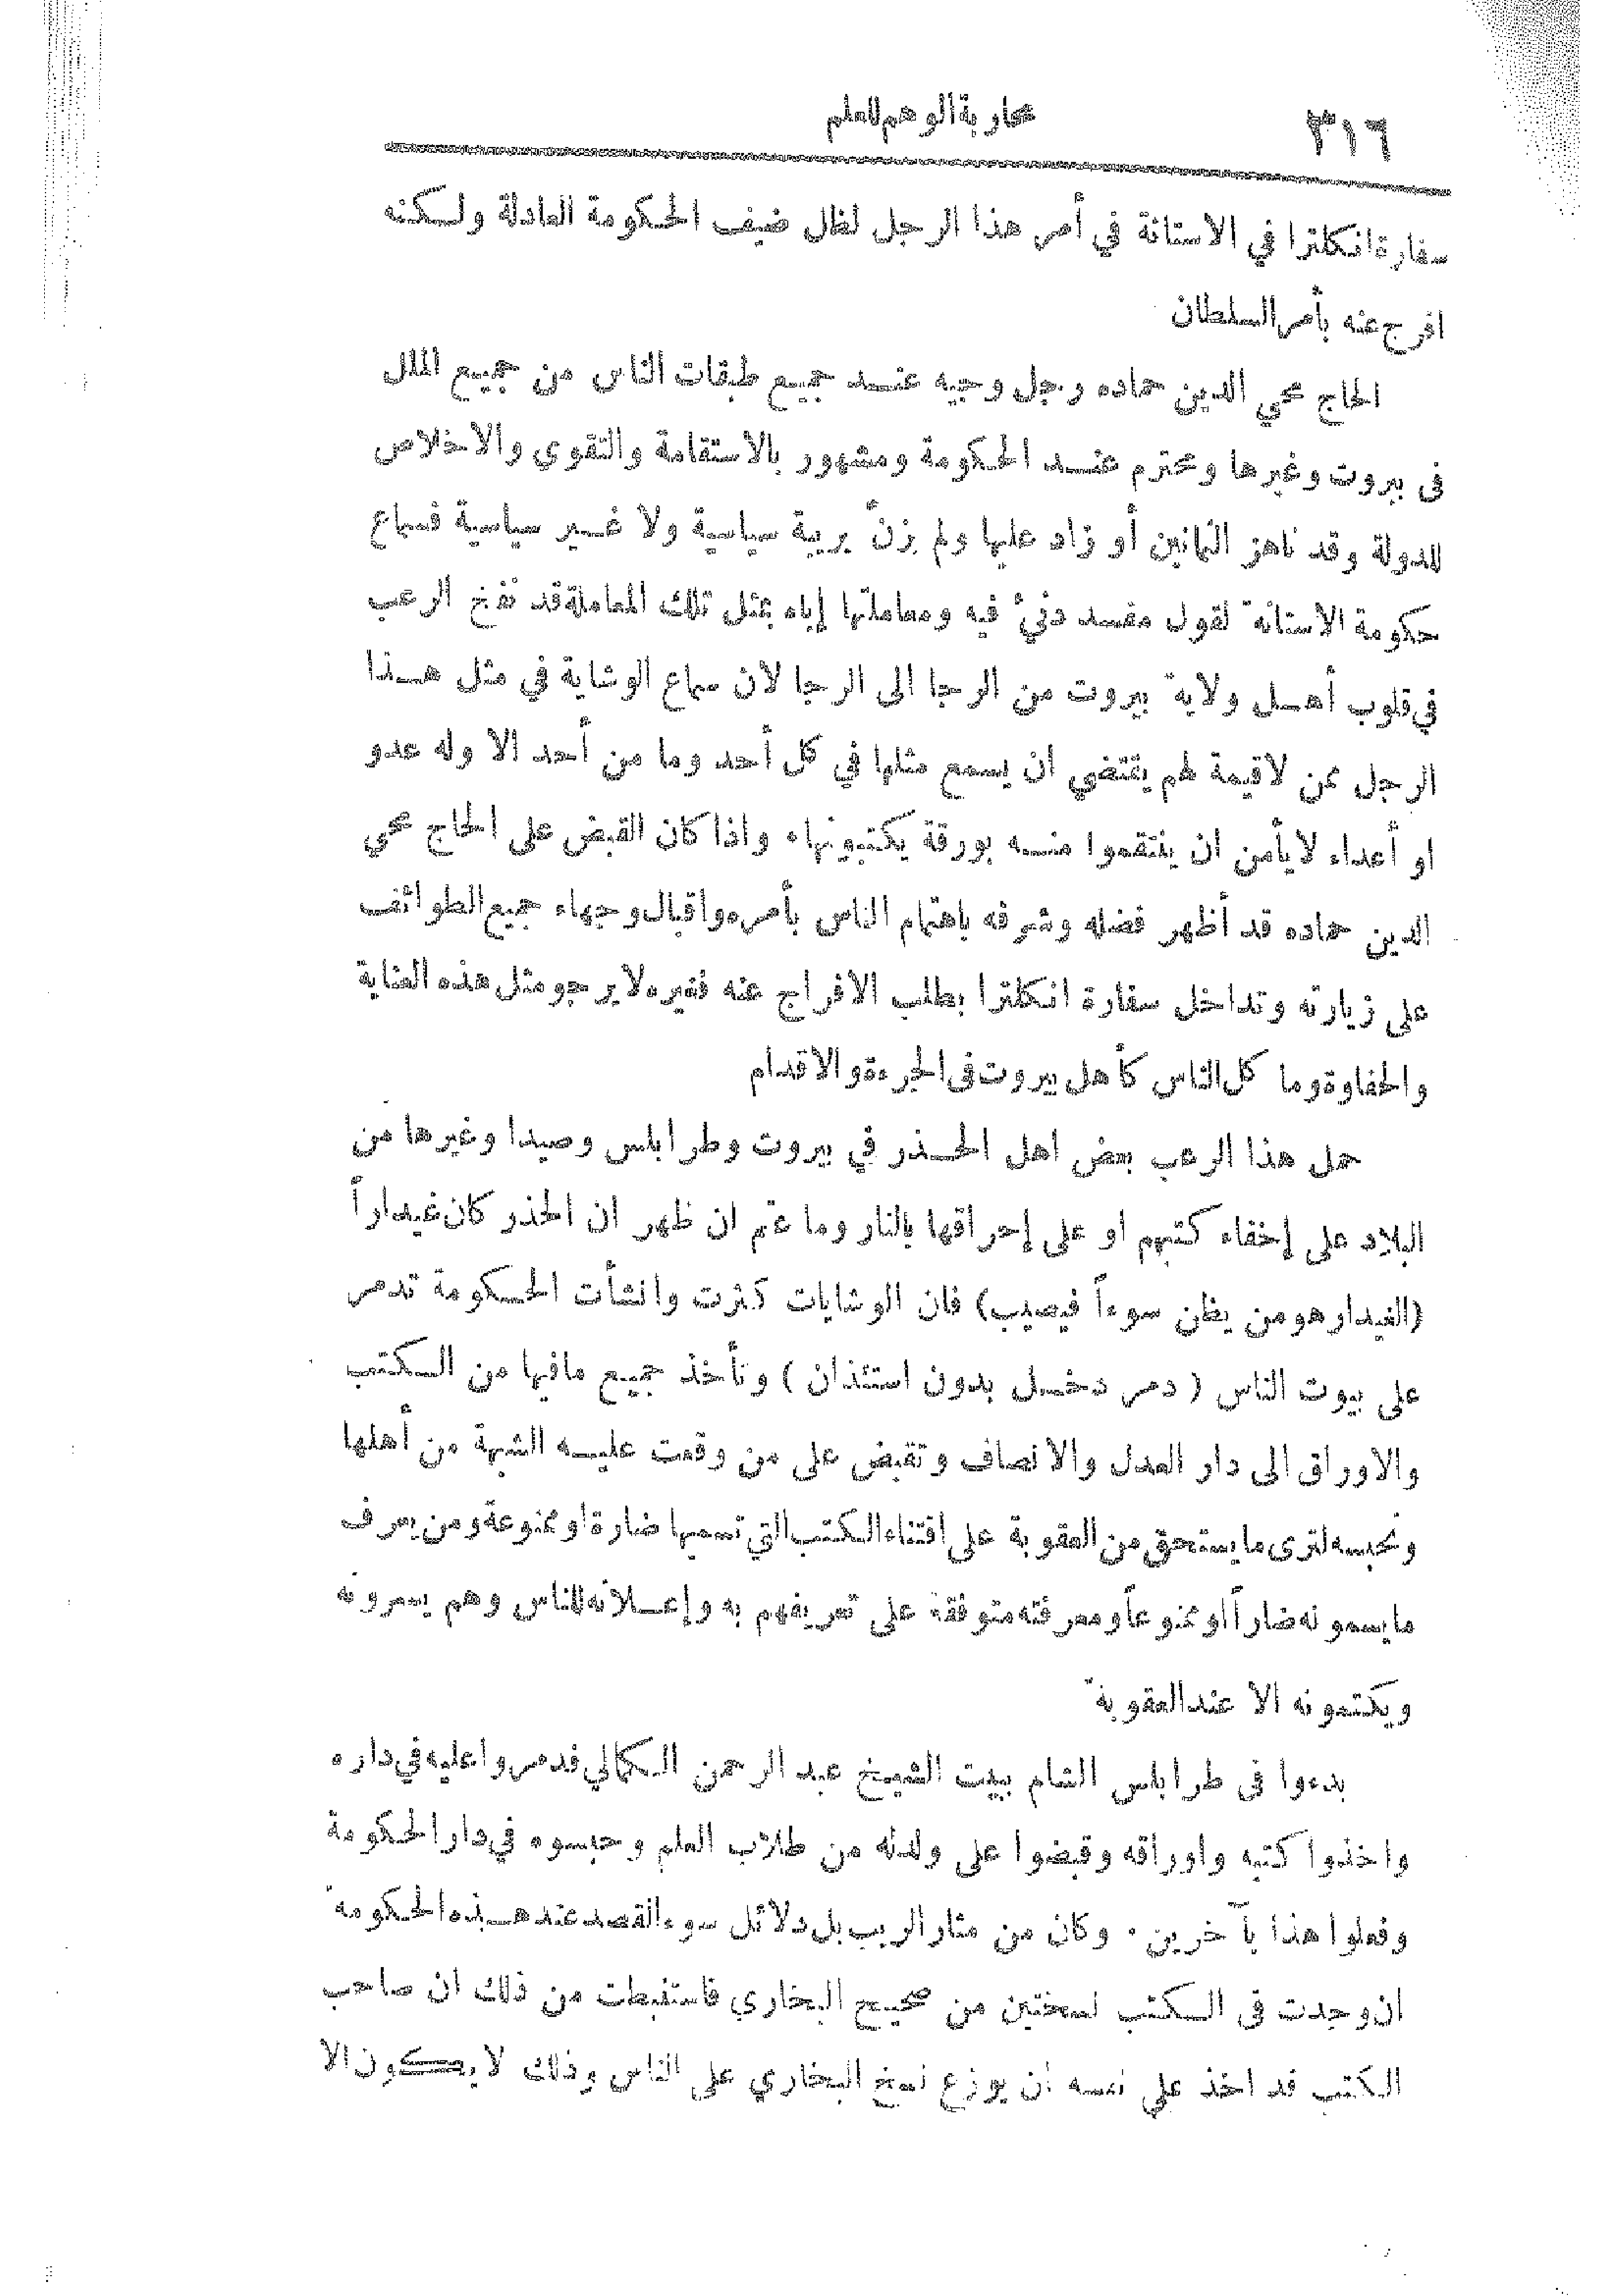 ٣١٦
محاربة الوهم للعلم
سفارة انكلترا في الاستانة في أمر هذا الرجل لظل ضيف الحكومة العادلة ولكنه
افرج عنه بأمر السلطان
الحاج محي الدين حماده رجل وجيه عند جميع طبقات الناس من جميع الملل
فى بيروت وغيرها ومحترم عند الحكومة ومشهور بالاستقامة والتقوى والاخلاص
للدولة وقد ناهز الثمانين أو زاد عليها ولم يزنّ بريبة سياسية ولا غير سياسية فسماع
حكومة الاستانة لقول مفسد دنيّ فيه ومعاملتها إياه بمثل تلك المعاملة قد نفخ الرعب
في قلوب أهل ولاية بيروت من الرجا الى الرجا لان سماع الوشاية في مثل هذا
الرجل ممن لاقيمة لهم يقتضي ان يسمع مثلها في كل أحد وما من أحد الا وله عدو
او أعداء لايأمن ان ينتقموا منه بورقة يكتبونها ٠ واذا كان القبض على الحاج محي
الدين حماده قد أظهر فضله وشرفه باهتمام الناس بأمره واقبال وجهاء جميع الطوائف
على زيارته وتداخل سفارة انكلترا بطلب الافراج عنه فغيره لا يرجو مثل هذه العناية
والحفاوة وما كل الناس كأهل بيروت فى الجرءة والاقدام
حمل هذا الرعب بعض اهل الحذر في بيروت وطرابلس وصيدا وغيرها من
البلاد على إخفاء كتبهم او على إحراقها بالنار وما عتّم ان ظهر ان الحذر كان غيداراً
(الغيدار هو من يظن سوءاً فيصيب) فان الوشايات كثرت وانشأت الحكومة تدمر
على بيوت الناس (دمر دخل بدون استئذان) وتأخذ جميع مافيها من الكتب
والاوراق الى دار العدل والانصاف وتقبض على من وقعت عليه الشبهة من أهلها
وتحبسه لترى ما يستحق من العقوبة على اقتناء الكتب التي تسميها ضارة او ممنوعة ومن يعرف
ما يسمونه ضاراً أو ممنوعاً ومعرفته متوقفة على تعريفهم به وإعلانه للناس وهم يسرونه
ويكتمونه الا عند العقوبة
بدءوا فى طرابلس الشام ببيت الشيخ عبد الرحمن الكمالي فدمروا عليه في داره
واخذوا كتبه واوراقه وقبضوا على ولدله من طلاب العلم وحبسوه في دار الحكومة
وفعلوا هذا بآخرين ٠ وكان من مثار الريب بل دلائل سوء القصد عند هذه الحكومة
ان وجدت فى الكتب نسختين من صحيح البخاري فاستنبطت من ذلك ان صاحب
الكتب قد اخذ على نفسه ان يوزع نسخ البخاري على الناس وذلك لا يكون الا